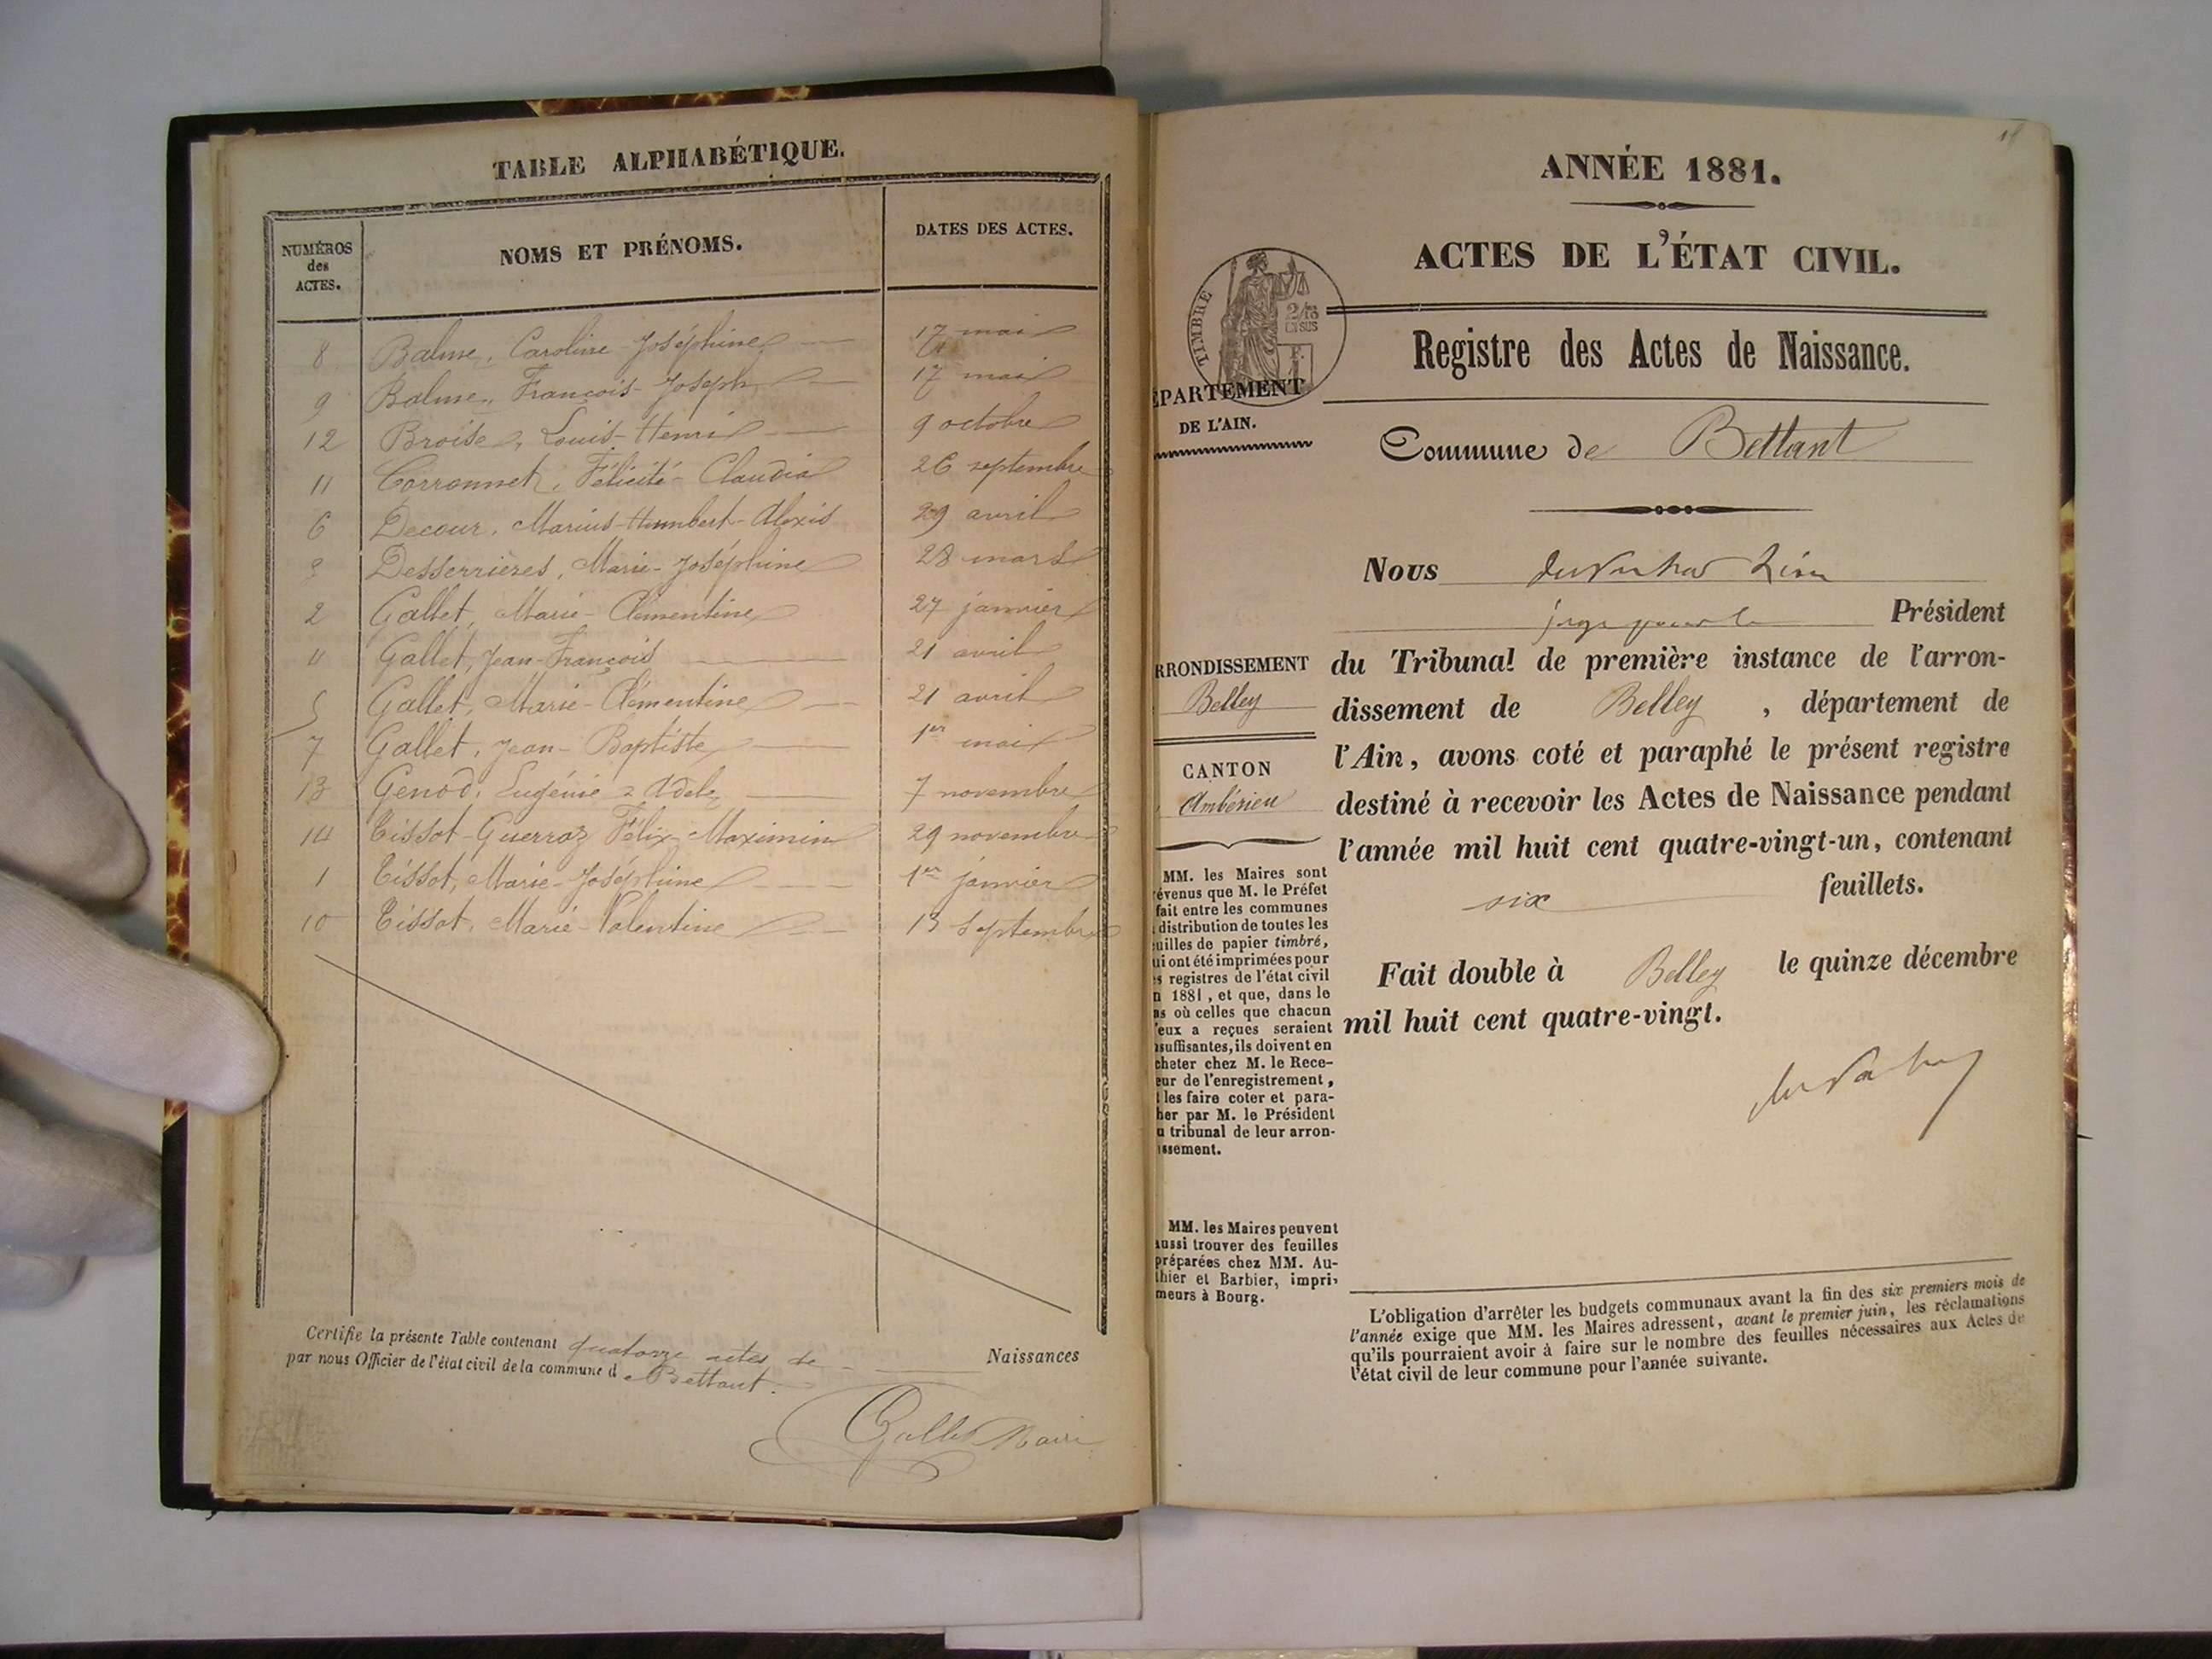 TABLE ALPHABÉTIQUE.
NUMÉROS
des
ACTES.
NOMS ET PRÉNOMS.
DATES DES ACTES.
8 Balme, Caroline Joséphine 17 mai
9 Balme, François-Joseph 17 mai
12 Broise, Louis-Henri 9 octobre
11 Corronnet, Félicité-Claudia 26 septembre
6 Decour, Marius-Humbert-Alexis 29 avril
Desserrières, Marie-Joséphine 28 mars
2 Gallet, Marie-Clémentine 27 janvier
4 Gallet, Jean-François 21 avril
5 Gallet, Marie-Clémentine 21 avril
7 Gallet, Jean-Baptiste 1er mai
13 Genod, Eugénie Adèle 7 novembre
14 Tissot-Guerraz Félix-Maximin 29 novembre
1 Tissot, Marie-Joséphine 1er janvier
10 Tissot, Marie-Valentine 13 septembre
Certifie la présente Table contenant quatorze actes de Naissances
par nous Officier de l'état civil de la commune d e Bettant.
Gallet Maire
ANNÉE 1881.
ACTES DE L'ÉTAT CIVIL.
TIMBRE
2/10
EN SUS
Registre des Actes de Naissance.
ÉPARTEMENT
DE L'AIN.
Commune de Bettant
Nous
Président
RRONDISSEMENT
Belley
CANTON
Ambérieu
du Tribunal de première instance de l'arron-
dissement de Belley, département de
l'Ain, avons coté et paraphé le présent registre
destiné à recevoir les Actes de Naissance pendant
l'année mil huit cent quatre-vingt-un, contenant
six feuillets.
Fait double à Belley le quinze décembre
mil huit cent quatre-vingt.
MM. les Maires sont
évenus que M. le Préfet
fait entre les communes
distribution de toutes les
uilles de papier timbré,
ui ont été imprimées pour
s registres de l'état civil
n 1881, et que, dans le
as où celles que chacun
'eux a reçues seraient
nsuffisantes, ils doivent en
cheter chez M. le Rece-
eur de l'enregistrement,
t les faire coter et para-
her par M. le Président
u tribunal de leur arron-
issement.
MM. les Maires peuvent
aussi trouver des feuilles
préparées chez MM. Au-
thier et Barbier, impri-
meurs à Bourg.
L'obligation d'arrêter les budgets communaux avant la fin des six premiers mois de
l'année exige que MM. les Maires adressent, avant le premier juin, les réclamations
qu'ils pourraient avoir à faire sur le nombre des feuilles nécessaires aux Actes de
l'état civil de leur commune pour l'année suivante.